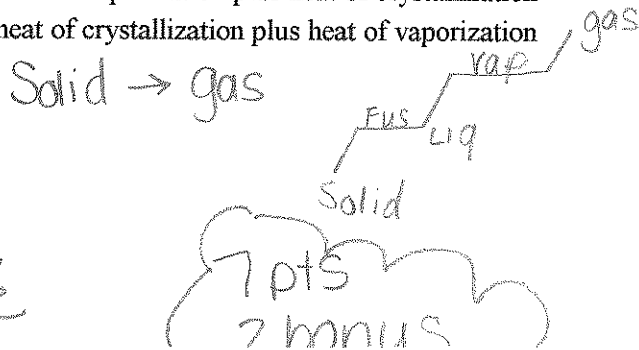 heat of crystallization plus heat of vaporization
gas
vap
Solid → gas
Fus
Liq
Solid
7 pts
2 bonus